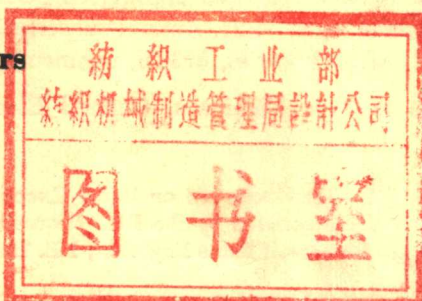 rs
紡織工业部
紡織机械制造管理局設計公司
图书室